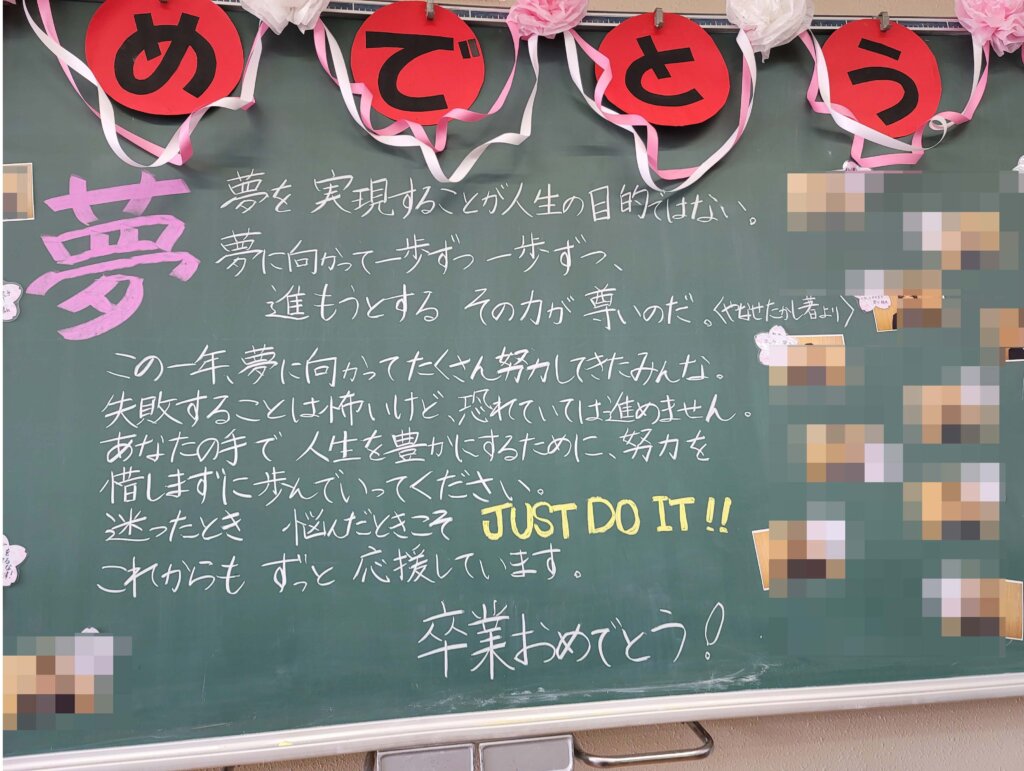 めでとう
夢
夢を 実現することが人生の目的ではない。
夢に向かって一歩ずつ 一歩ずつ、
進もうとする その力が 尊いのだ。〈やなせたかし著より〉
この一年、夢に向かってたくさん努力してきたみんな。
失敗することは怖いけど、恐れていては進めません。
あなたの手で 人生を豊かにするために、努力を
惜しまずに歩んでいってください。
迷ったとき 悩んだときこそ JUST DO IT!!
これからも ずっと 応援しています。
卒業おめでとう!